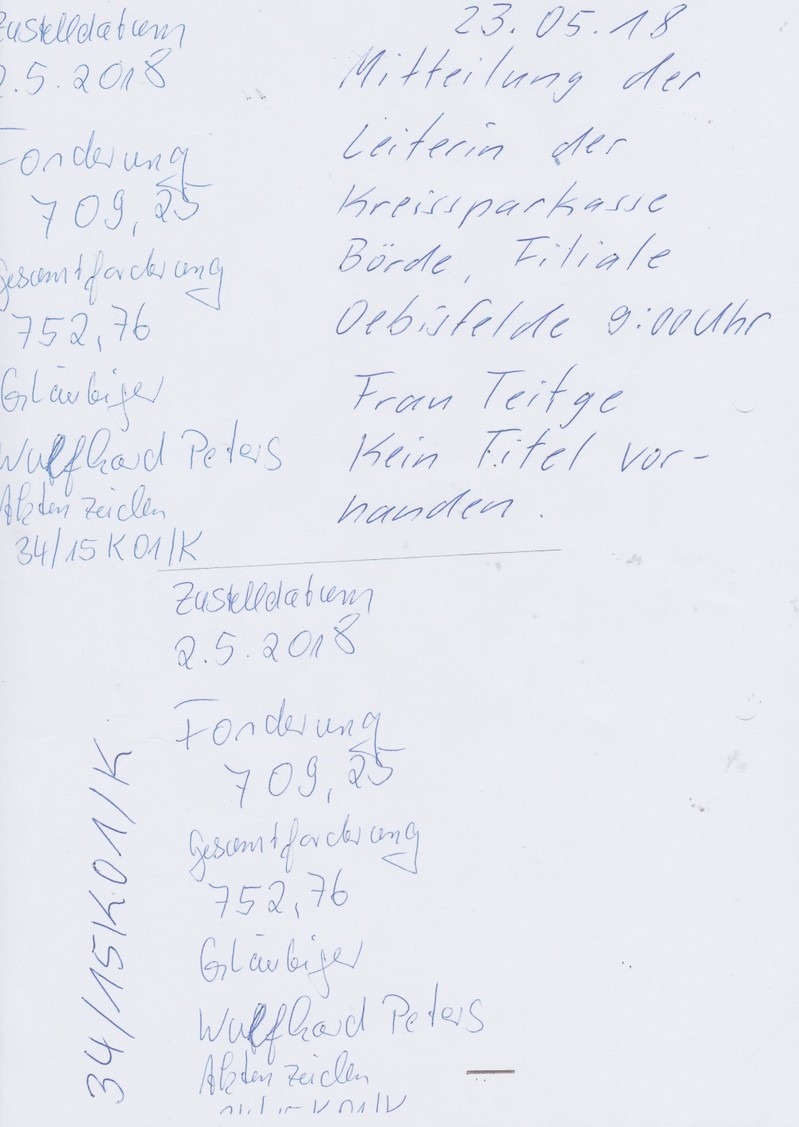 Zustelldatum
2.5.2018
Forderung
709,25
Gesamtforderung
752,76
Gläubiger
Wulfhard Peters
Aktenzeichen
34/15K01/K
23.05.18
Mitteilung der
Leiterin der
Kreissparkasse
Börde, Filiale
Oebisfelde 9:00 Uhr
Frau Teitge
Kein Titel vor-
handen.
Zustelldatum
2.5.2018
Forderung
709,25
Gesamtforderung
752,76
Gläubiger
Wulfhard Peters
Aktenzeichen
34/15K01/K
34/15K01/K